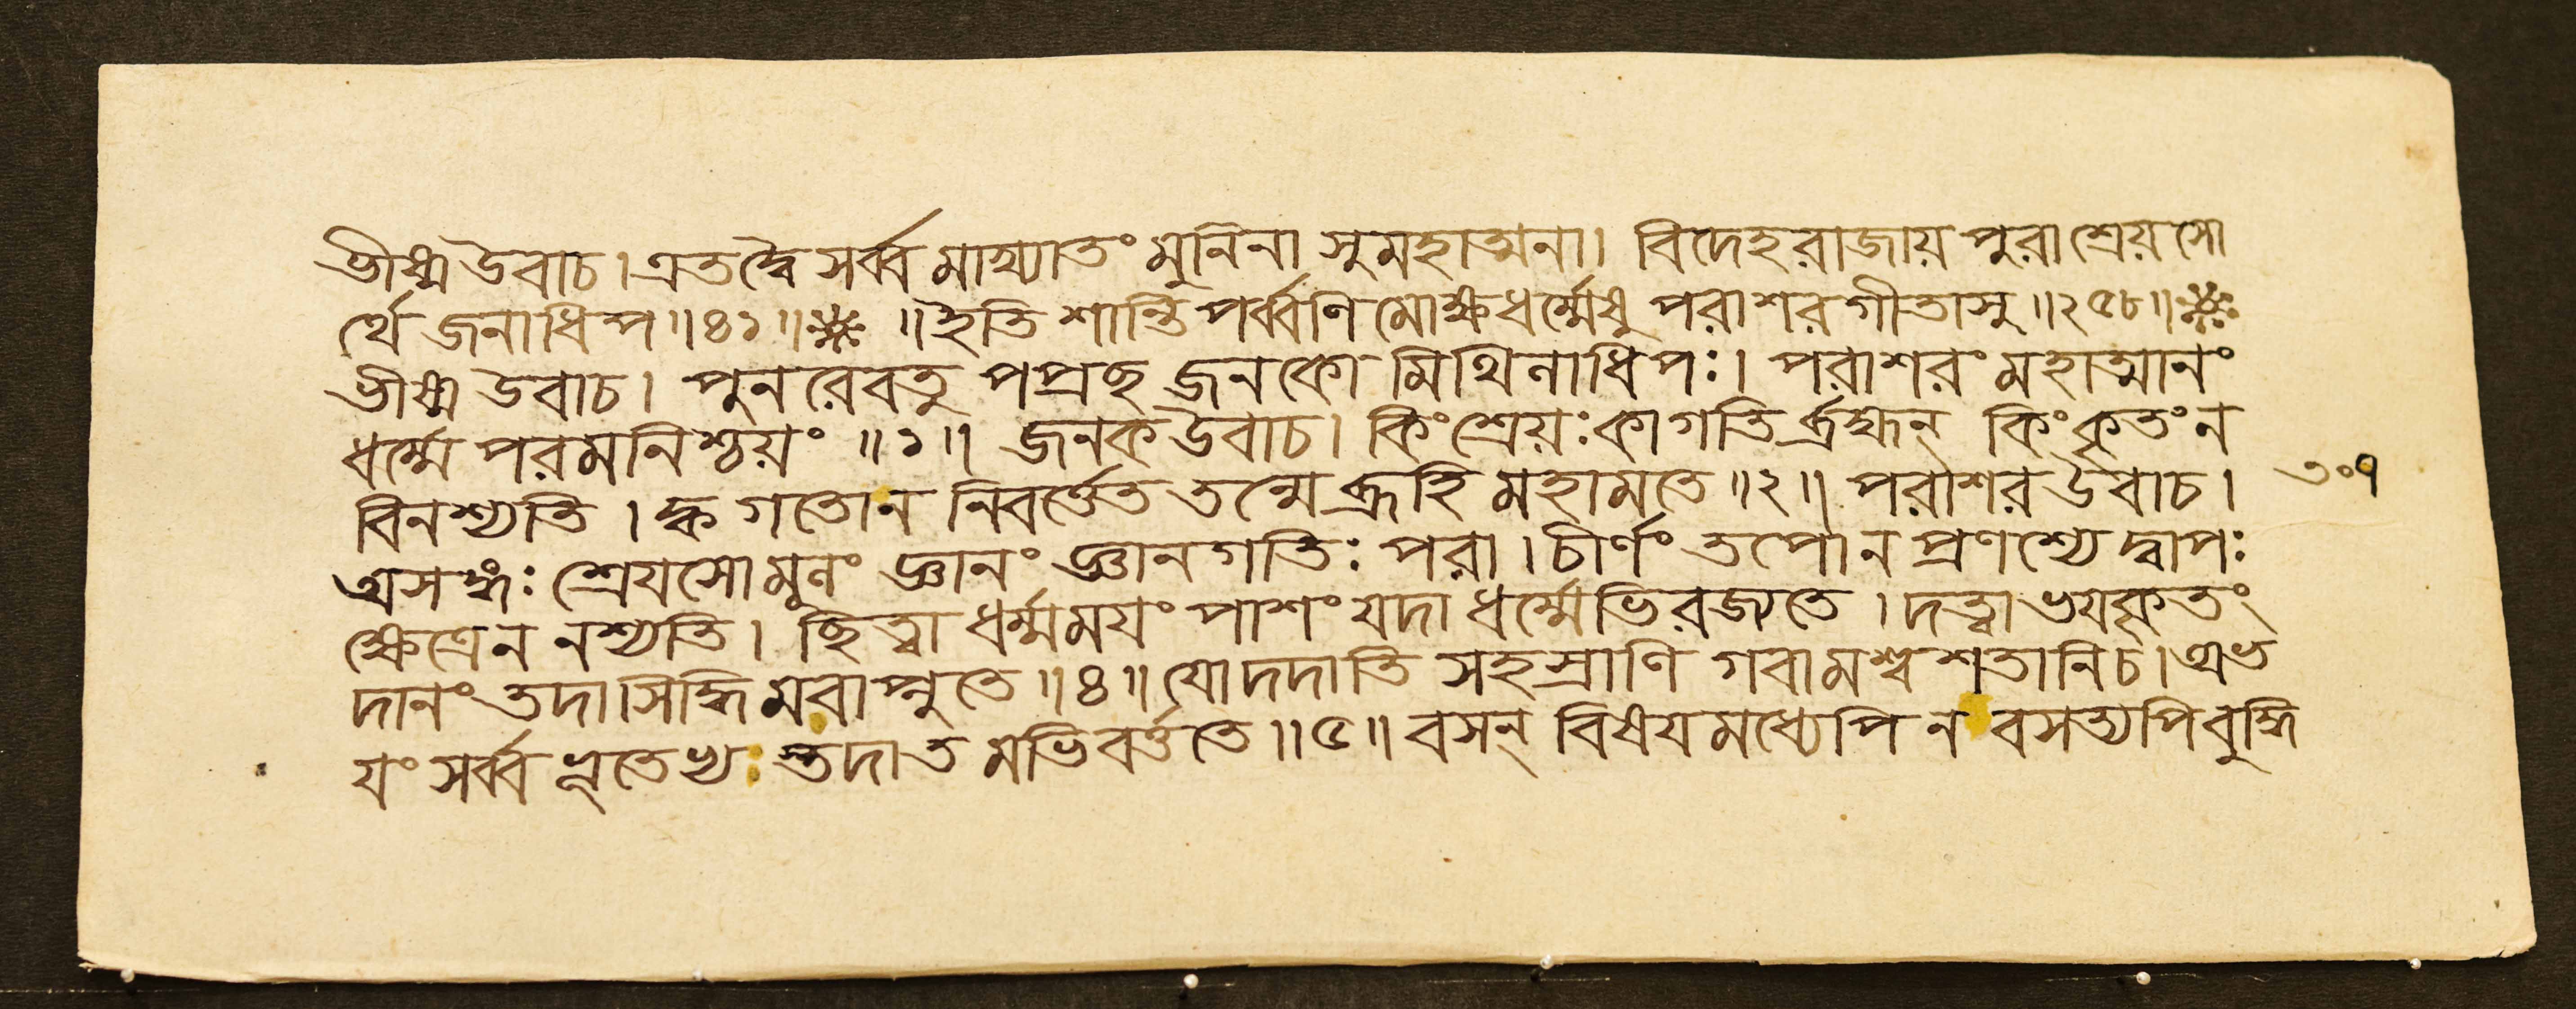 ভীষ্ম উবাচ। এতদ্বৈ সর্ব্বমাখ্যাতং মুনিনা সুমহাত্মনা। বিদেহরাজায় পুরা শ্রেয়সো
র্থে জনাধিপ॥৪১॥ ॥ইতি শান্তিপর্ব্বণি মোক্ষধর্ম্মেষু পরাশরগীতাসু॥২৫৮॥
ভীষ্ম উবাচ। পুনরেবতু পপ্রছ জনকো মিথিলাধিপঃ। পরাশরং মহাত্মানং
ধর্ম্মে পরমনিশ্চয়ং ॥১॥ জনক উবাচ। কিংশ্রেয়ঃ কাগতির্ব্রহ্মন্ কিংকৃতং ন
বিনশ্যতি। ক্ব গতোন নিবর্ত্তেত তন্মেব্রূহি মহামতে॥২॥ পরাশর উবাচ।
৩০৭
অসঙ্গঃ শ্রেয়সোমূলং জ্ঞানং জ্ঞানগতিঃ পরা। চীর্ণং তপোন প্রণশ্যেদ্বাপঃ
ক্ষেত্রেন নশ্যতি। ছিত্বা ধর্ম্মময়ং পাশং যদা ধর্ম্মেভিরজ্যতে। দত্বাভয়কৃতং
দানং তদাসিদ্ধিমবাপ্নুতে॥৪॥ যোদদাতি সহস্রাণি গবামশ্বশতানিচ। অভ
য়ং সর্ব্বভূতেভ্যঃ তদাতমভিবর্ত্ততে॥৫॥ বসন্ বিষয়মধ্যেপি ন বসত্যপিবুদ্ধি